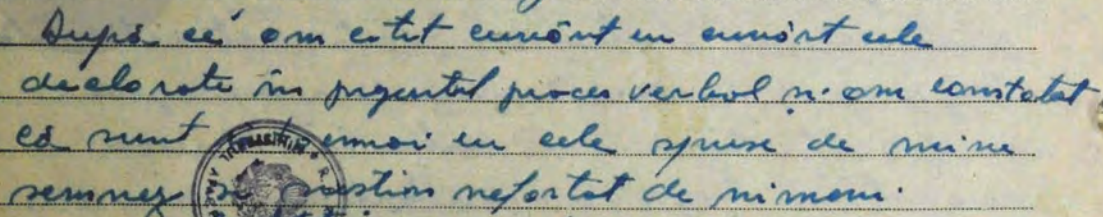 După ce am citit cuvânt cu cuvânt cele
declarate în prezentul proces verbal și am constatat
că sunt întocmai cu cele spuse de mine
semnez și susțin neforțat de nimeni.